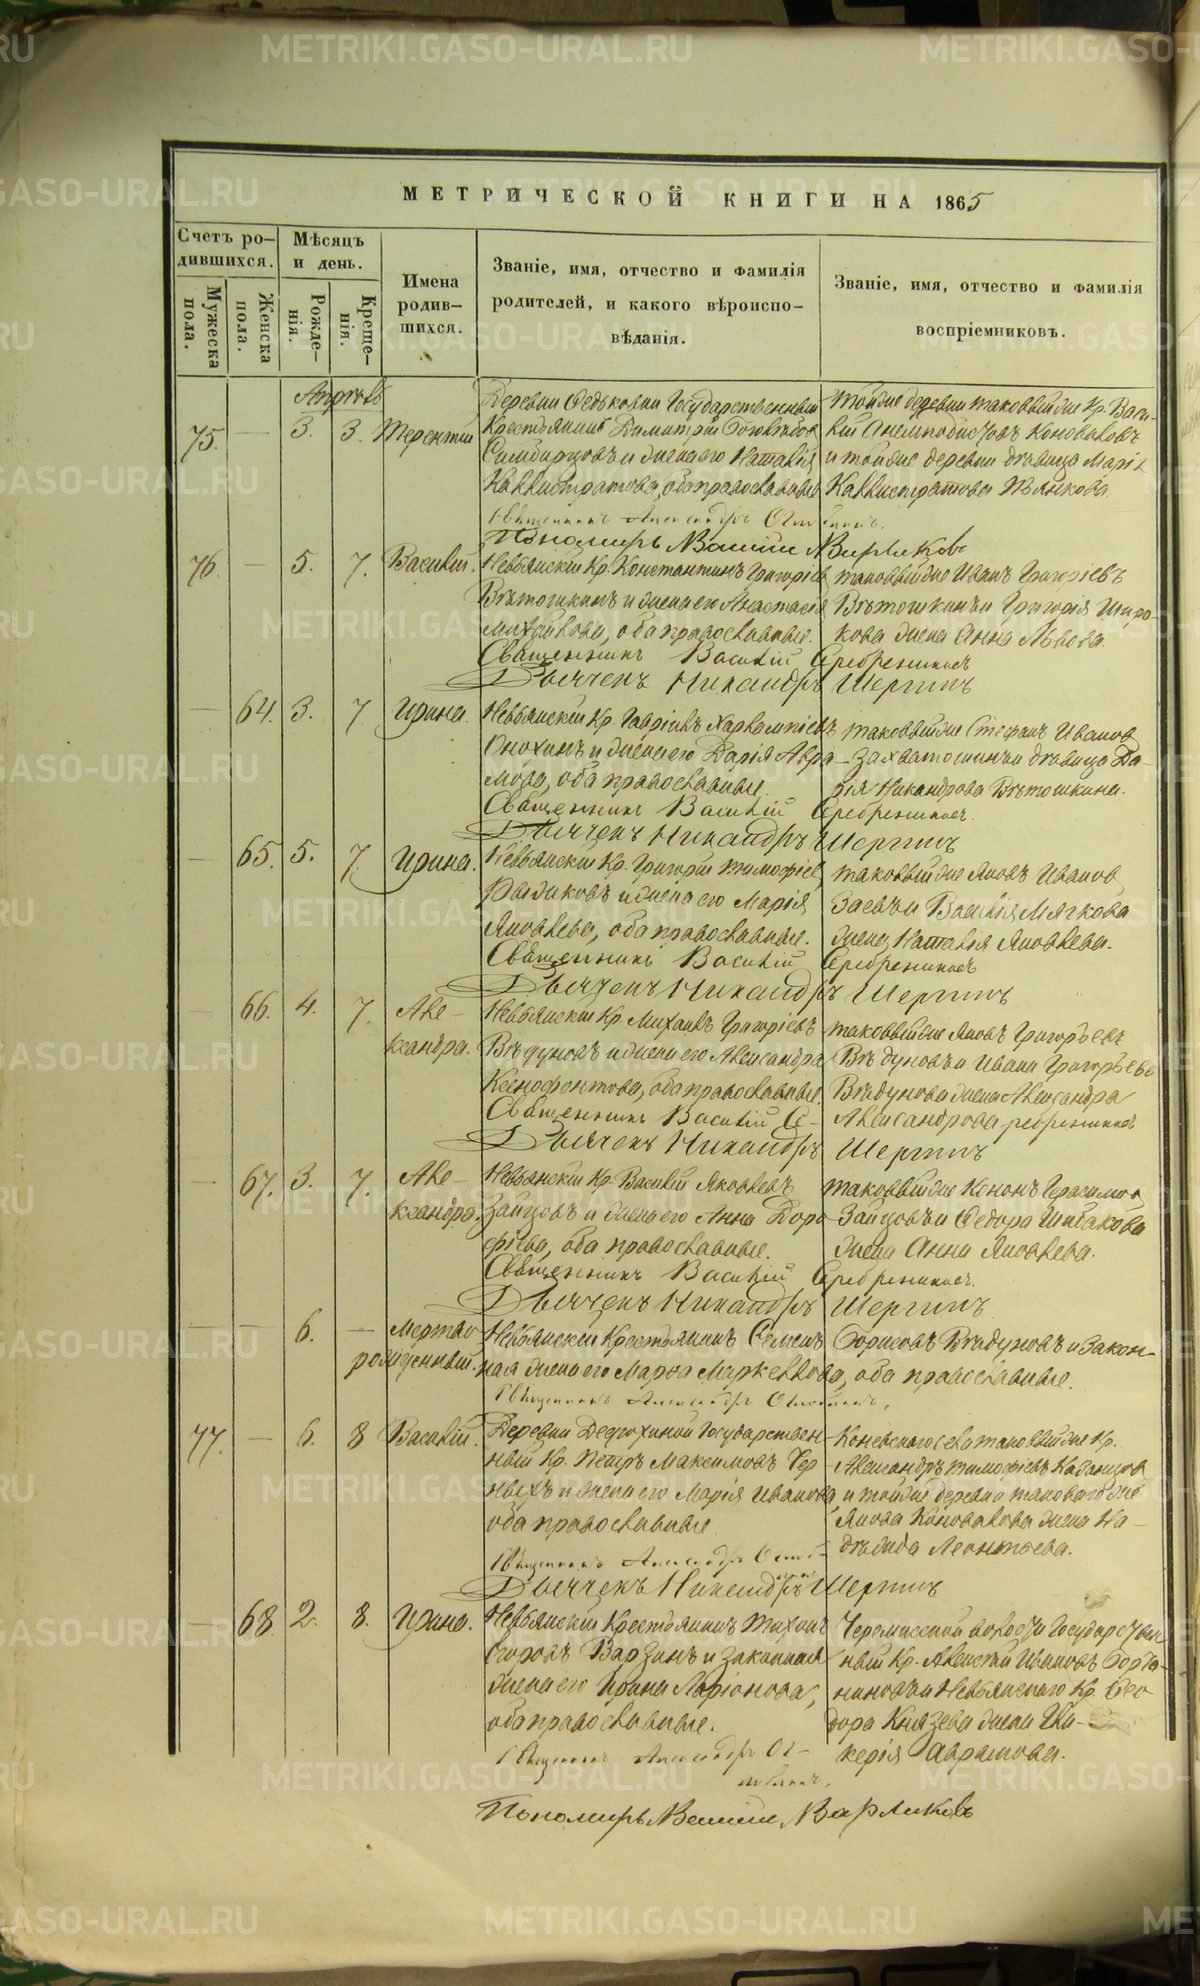 МЕТРИЧЕСКОЙ КНИГИ НА 1865
Счетъ ро-
дившихся.
Мѣсяцъ
и день.
Мужеска
пола.
Женска
пола.
Рожде-
нія.
Креще-
нія.
Имена
родив-
шихся.
Званіе, имя, отчество и фамилія
родителей, и какого вѣроиспо-
вѣданія.
Званіе, имя, отчество и фамилія
воспріемниковъ.
Апрѣль
75. — 3. 3. Терентій
Деревни Федьковки Государственный
Крестьянинъ Димитрій
и жена его Наталія
Каллистратова, оба православные
Тойже деревни таковыйже Кр. Васи-
лій Коноваловъ
и тойже деревни дѣвица Марія
Каллистратова Пьянкова.
Священникъ Александръ
Пономарь Варлаковъ
76. — 5. 7. Василій.
Невьянскій Кр. Константинъ Григорьев
Вѣтошкинъ и жена его Анастасія
Михайлова, оба православные.
таковыйже Иванъ Григорьевъ
Вѣтошкинъ и Григорія Широ-
кова жена Анна Львова.
Священникъ Василій Серебренниковъ
Дьячекъ Никандръ Шергинъ
— 64. 3. 7 Ирина.
Невьянскій Кр. Гавріилъ Харлампіевъ
Онохинъ и жена его Дарія Авра-
мова, оба православные.
таковыйже Стефанъ Иванов
Захватошинъ и дѣвица Да-
рія Никандрова Вѣтошкина.
Священникъ Василій Серебренниковъ.
Дьячекъ Никандръ Шергинъ
— 65. 5. 7. Ирина.
Невьянскій Кр. Григорій Тимофѣев
и жена его Марія
Яковлева, оба православные.
таковыйже Яковъ Иванов
Заевъ и Василія Мягкова
жена Наталія Яковлева.
Священникъ Василій Серебренниковъ
Дьячекъ Никандръ Шергинъ
— 66. 4. 7. Але-
ксандра.
Невьянскій Кр. Михаилъ Григорьевъ
Вѣдуновъ и жена его Александра
Ксенофонтова, оба православные.
таковыйже Яковъ Григорьевъ
Вѣдуновъ и Ивана Григорьева
Вѣдунова жена Александра
Александрова.
Священникъ Василій Се-ребренниковъ
Дьячекъ Никандръ Шергинъ
— 67. 3. 7. Але-
ксандра.
Невьянскій Кр. Василій Яковлевъ
Зайцовъ и жена его Анна Доро-
фѣева, оба православные.
таковыйже Кононъ Герасимов
Зайцовъ и Федора Шибакова
жена Анна Яковлева.
Священникъ Василій Серебренниковъ.
Дьячекъ Никандръ Шергинъ
— — 6. — Мертво-
рожденный.
Невьянскій Крестьянинъ Семенъ Борисовъ Вѣдуновъ и закон-
ная жена его Марфа Маркеллова, оба православные.
Священникъ Александръ
77. — 6. 8 Василій.
Деревни Государствен-
ный Кр. Петръ Максимовъ Чер-
ныхъ и жена его Марія Иванова,
оба православные
Коневскаго села таковыйже Кр.
Александръ Тимофѣевъ Кабанцов
и тойже деревни таковагоже
Якова Коновалова жена На-
дѣжда Леонтьева.
Священникъ Александръ
Дьячекъ Никандръ Шергинъ
— 68 2. 8. Ирина.
Невьянскій Крестьянинъ Тихонъ
Егоровъ Варзинъ и законная
жена его Ирина Ларіонова,
оба православные.
Черемисской волости Государствен-
ный Кр. Алексѣй Ивановъ
и Невьянскаго Кр. Фео-
дора Князева жена Гли-
керія Аврамова.
Священникъ Александръ
Пономарь Варлаковъ
METRIKI.GASO-URAL.RU